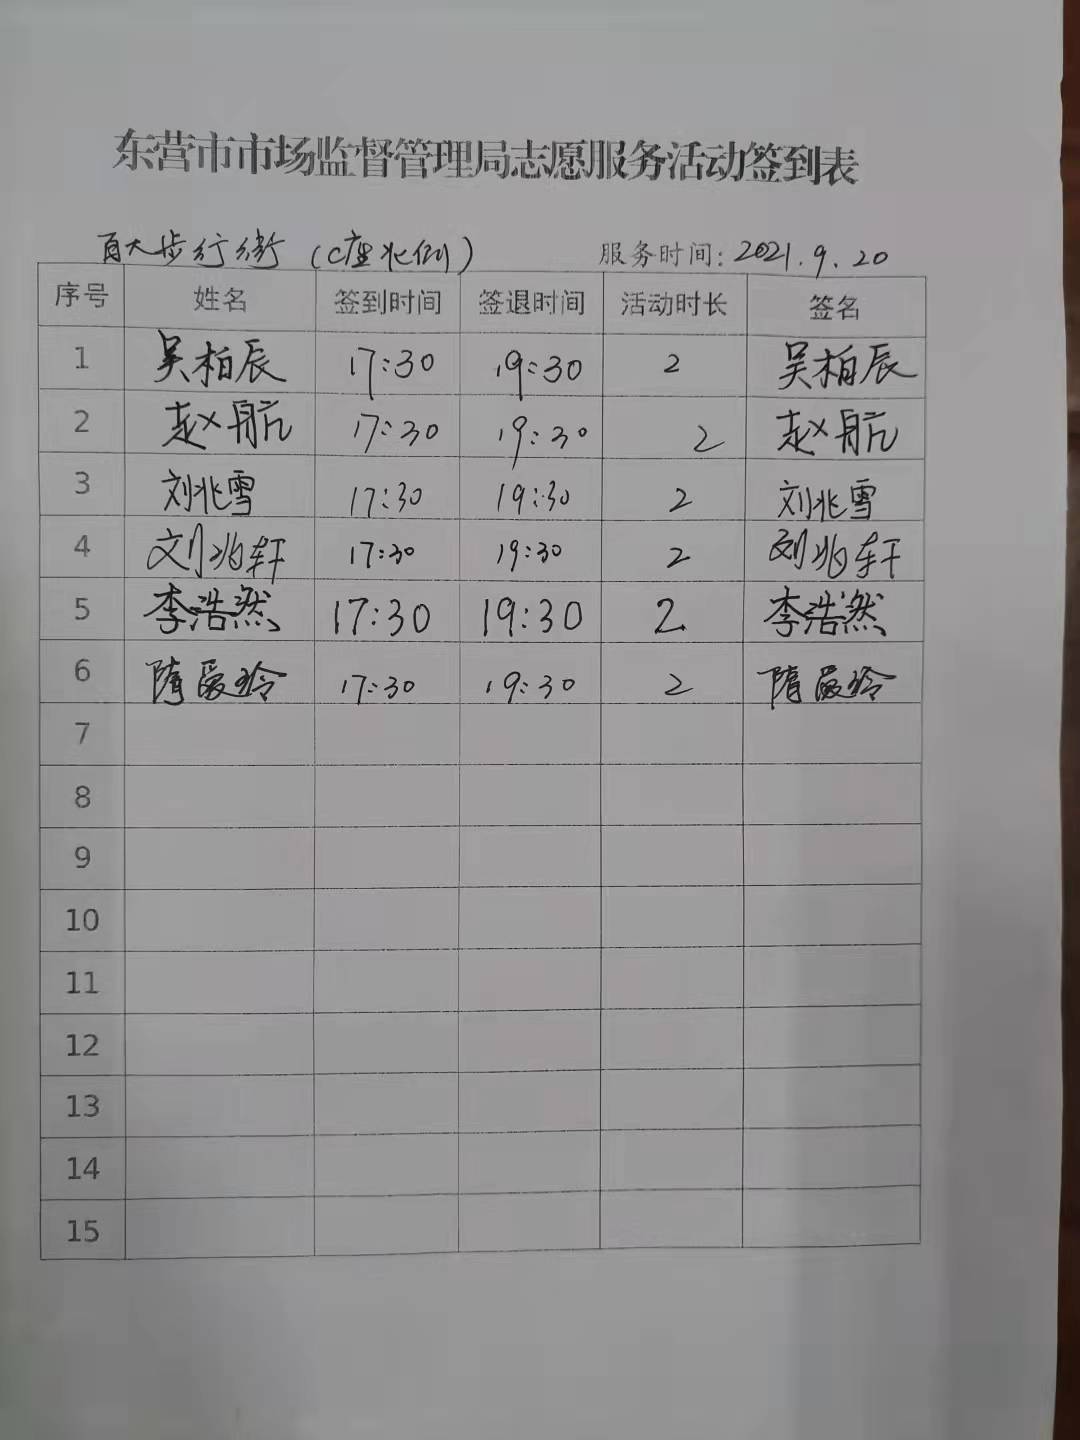 东营市市场监督管理局志愿服务活动签到表
百大步行街（C座北侧） 服务时间：2021.9.20
序号 姓名 签到时间 签退时间 活动时长 签名
1 吴柏辰 17:30 19:30 2 吴柏辰
2 赵航 17:30 19:30 2 赵航
3 刘兆雪 17:30 19:30 2 刘兆雪
4 刘兆轩 17:30 19:30 2 刘兆轩
5 李浩然 17:30 19:30 2 李浩然
6 隋 玲 17:30 19:30 2 隋 玲
7
8
9
10
11
12
13
14
15